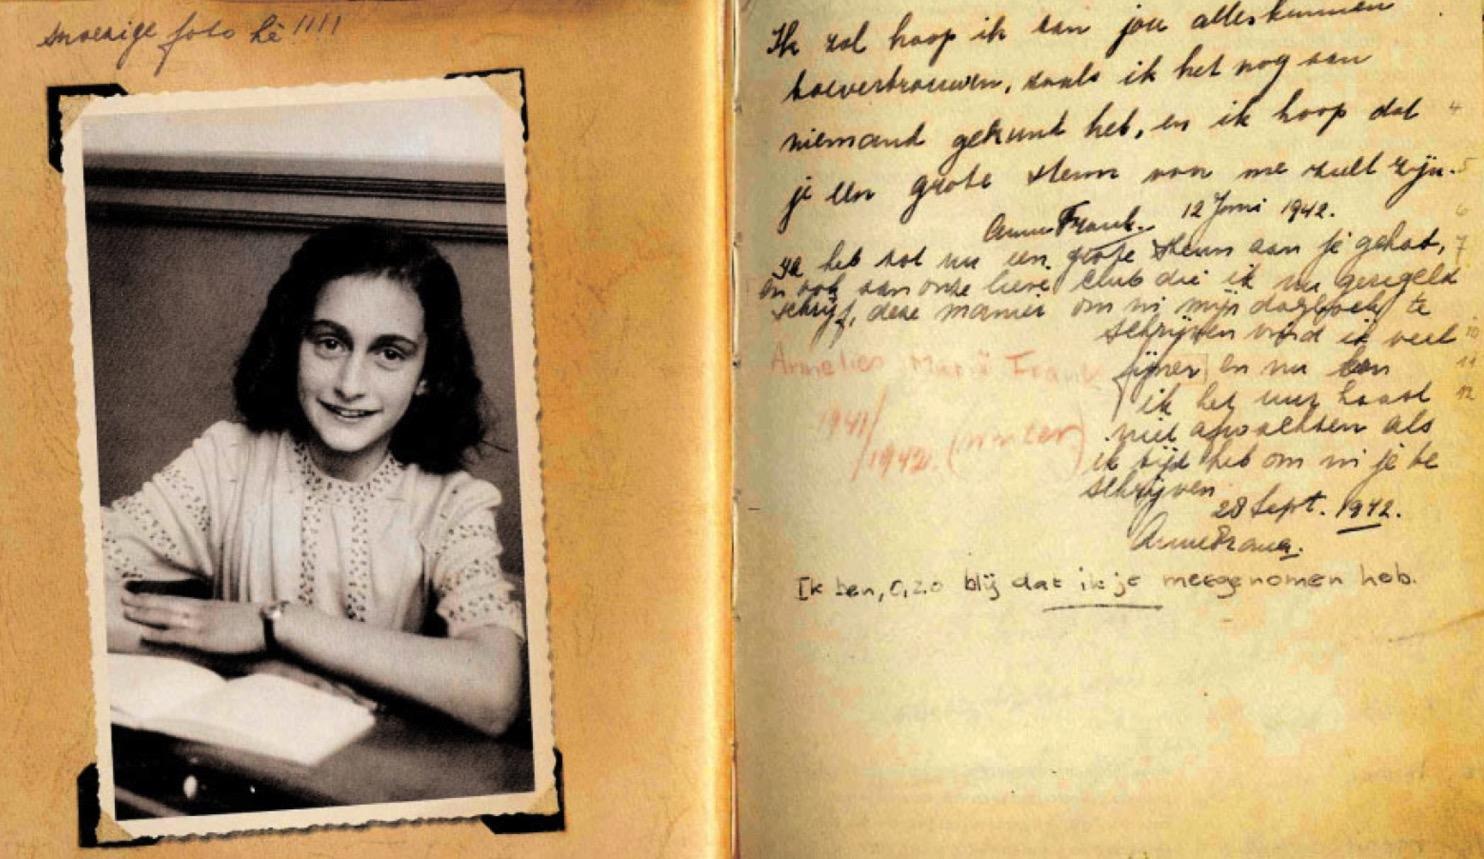 snoezige foto hè!!!!
Ik zal hoop ik aan jou alles kunnen
toevertrouwen, zoals ik het nog aan
niemand gekund heb, en ik hoop dat
je een grote steun van me zult zijn.
Anne Frank. 12 Juni 1942.
Ik heb tot nu een grote steun aan je gehad,
en ook aan onze lieve club die ik nu geregeld
schrijf, deze manier om in mijn dagboek te
schrijven vind ik veel
fijner en nu kan
ik het uur haast
niet afwachten als
ik tijd heb om in je te
schrijven.
28 Sept. 1942.
Anne Frank.
Annelies Marie Frank
1941/
1942. (winter)
Ik ben, o, zo blij dat ik je meegenomen heb.
4
5
6
7
10
11
12